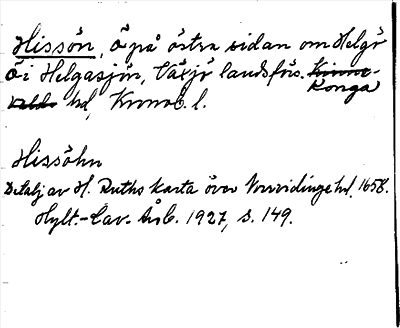 Hissön, Ö på östra sidan om Helgö
Ö i Helgasjön, Växjö landsförs. Kinne-
valds hd, Kronob. l. Konga
Hissöhn
Detalj av H. Ruths karta över Norrvidinge hd. 1658.
Hylt.-Cav. årsb. 1927, s. 149.